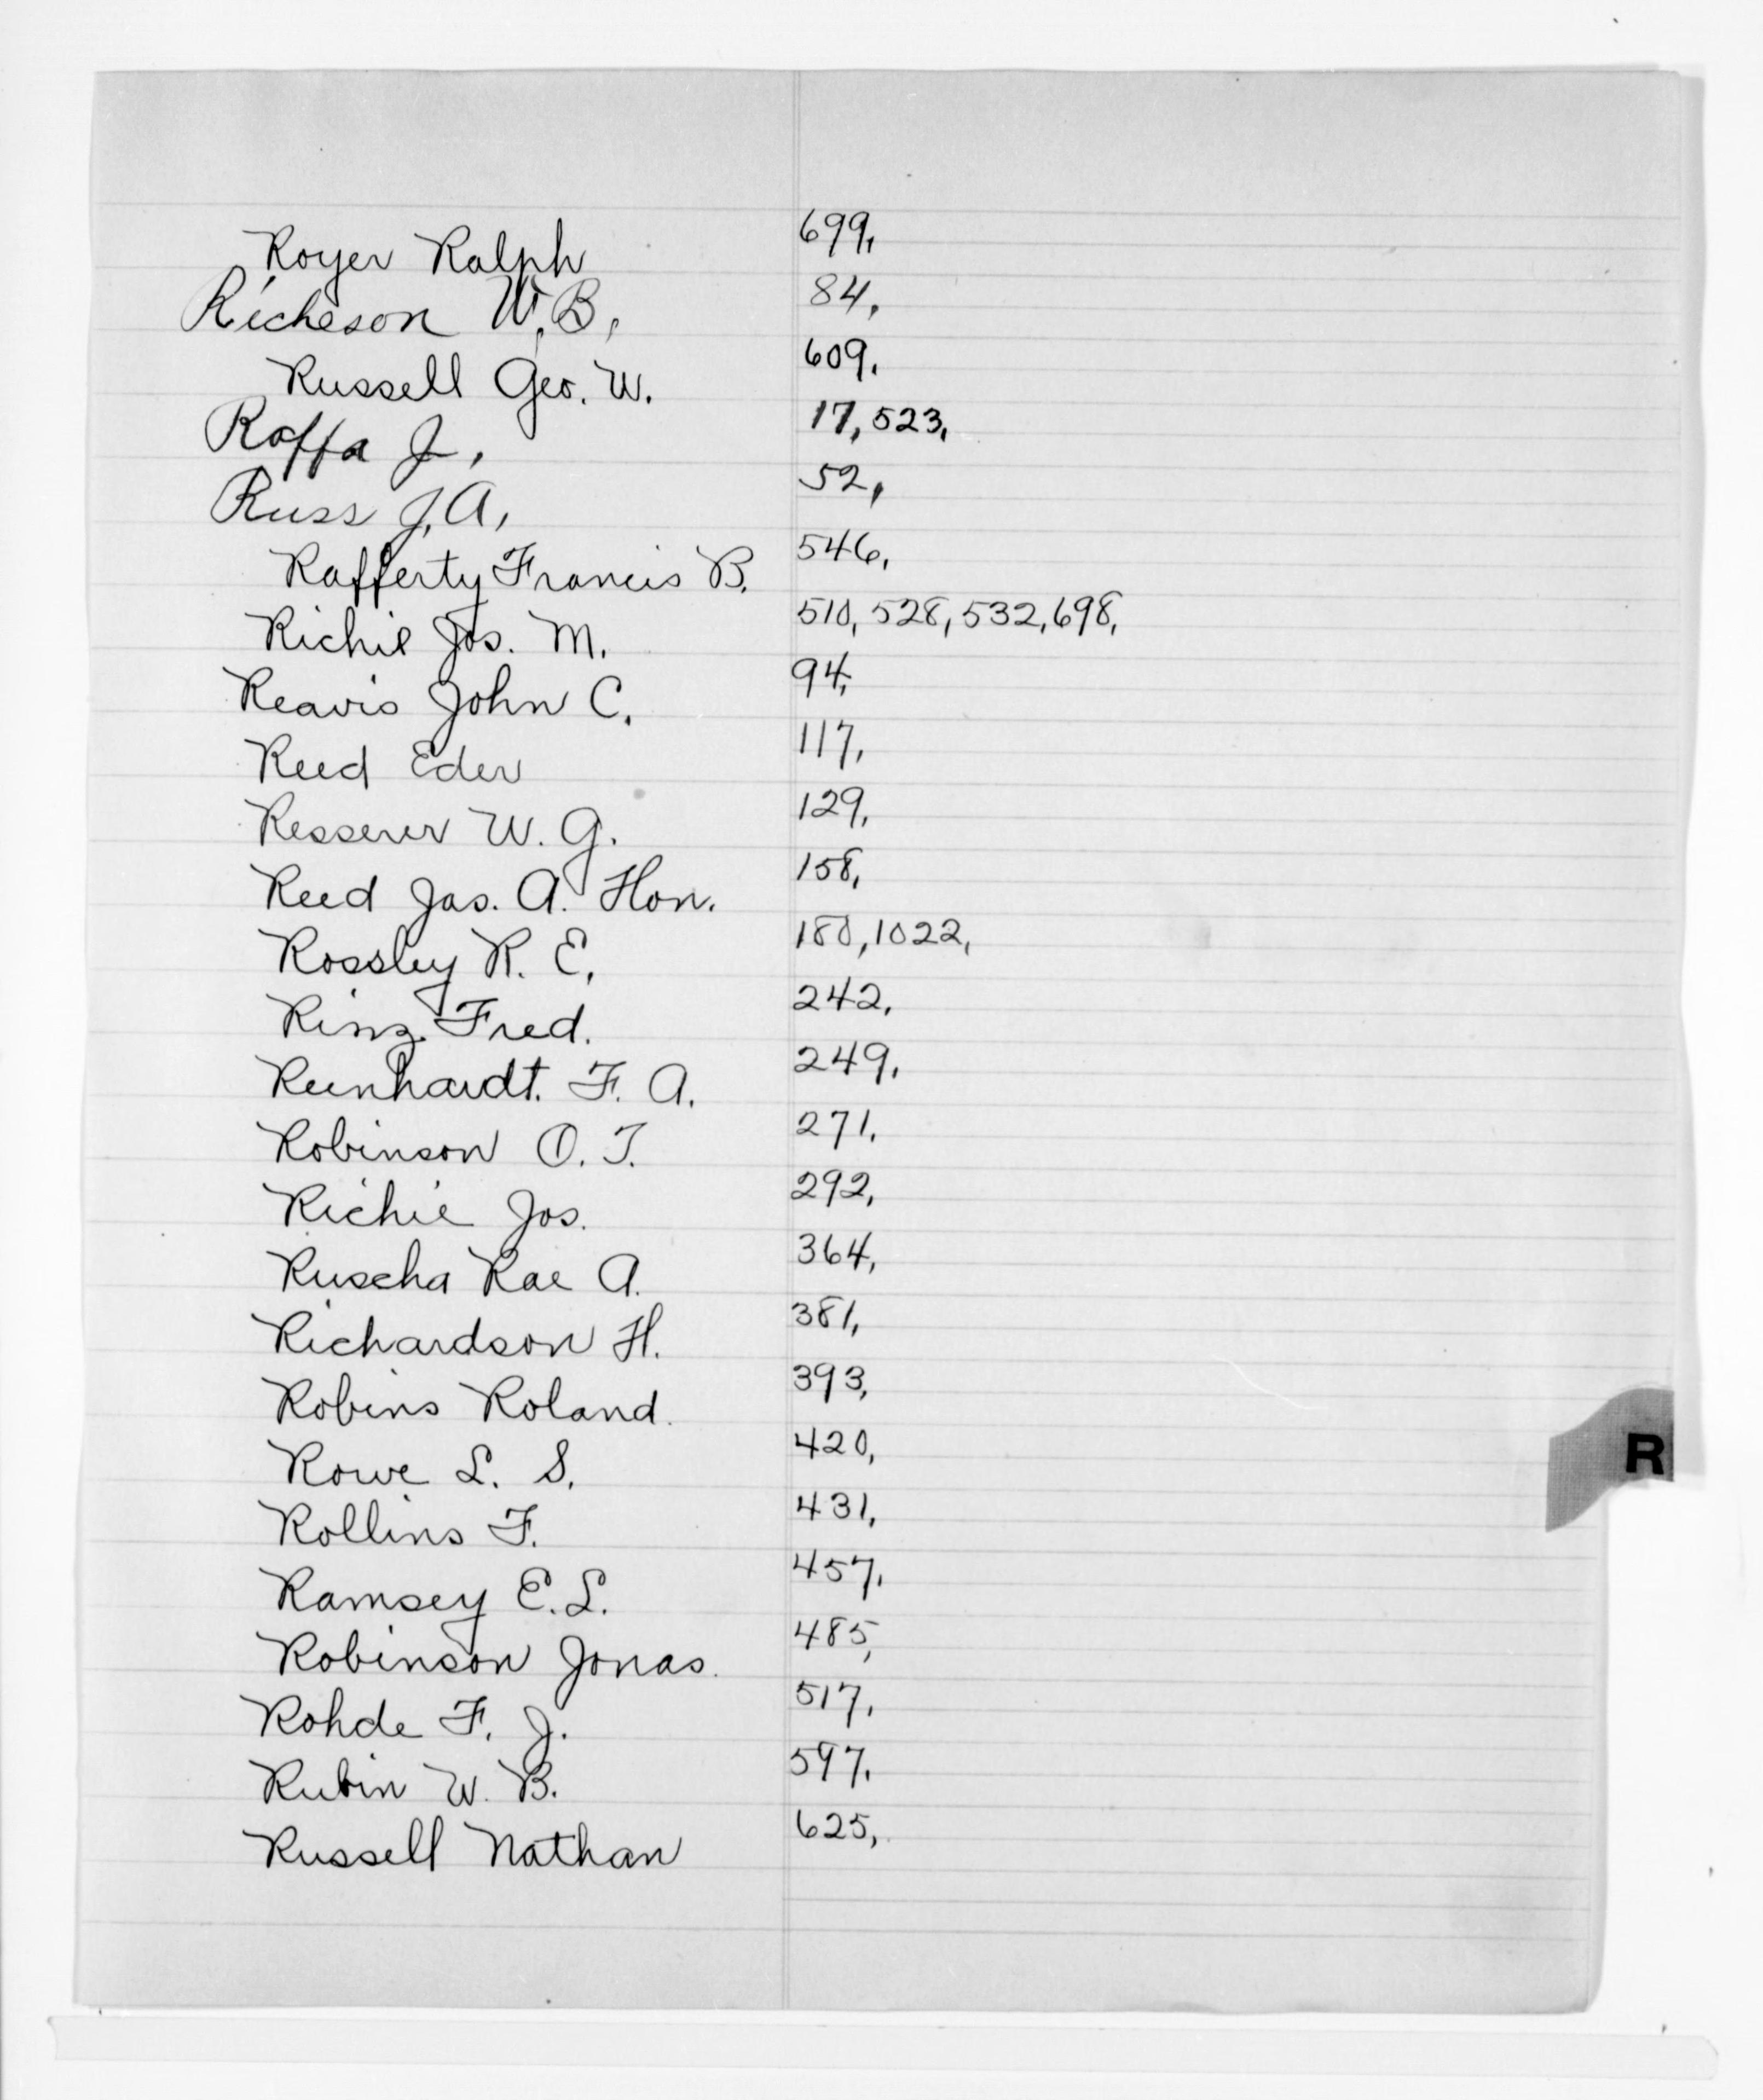 Royer Ralph 699,
Richeson W. B, 84,
Russell Geo. W. 609,
Raffa J, 17, 523,
Russ J, A, 52,
Rafferty Francis B. 546,
Richie Jos. M. 510, 528, 532, 698,
Reavis John C. 94,
Reed Eder 117,
Resserer W. G. 129,
Reed Jas. A. Hon. 158,
Rossley R. E. 180, 1022,
Rinz Fred. 242,
Reinhardt. F. A. 249,
Robinson O. T. 271,
Richie Jos. 292,
Ruscha Rae A. 364,
Richardson H. 381,
Robins Roland. 393,
Rowe L. S. 420,
Rollins F. 431,
Ramsey E. L. 457,
Robinson Jonas. 485,
Rohde F. J. 517,
Rubin W. B. 597,
Russell Nathan 625,
R